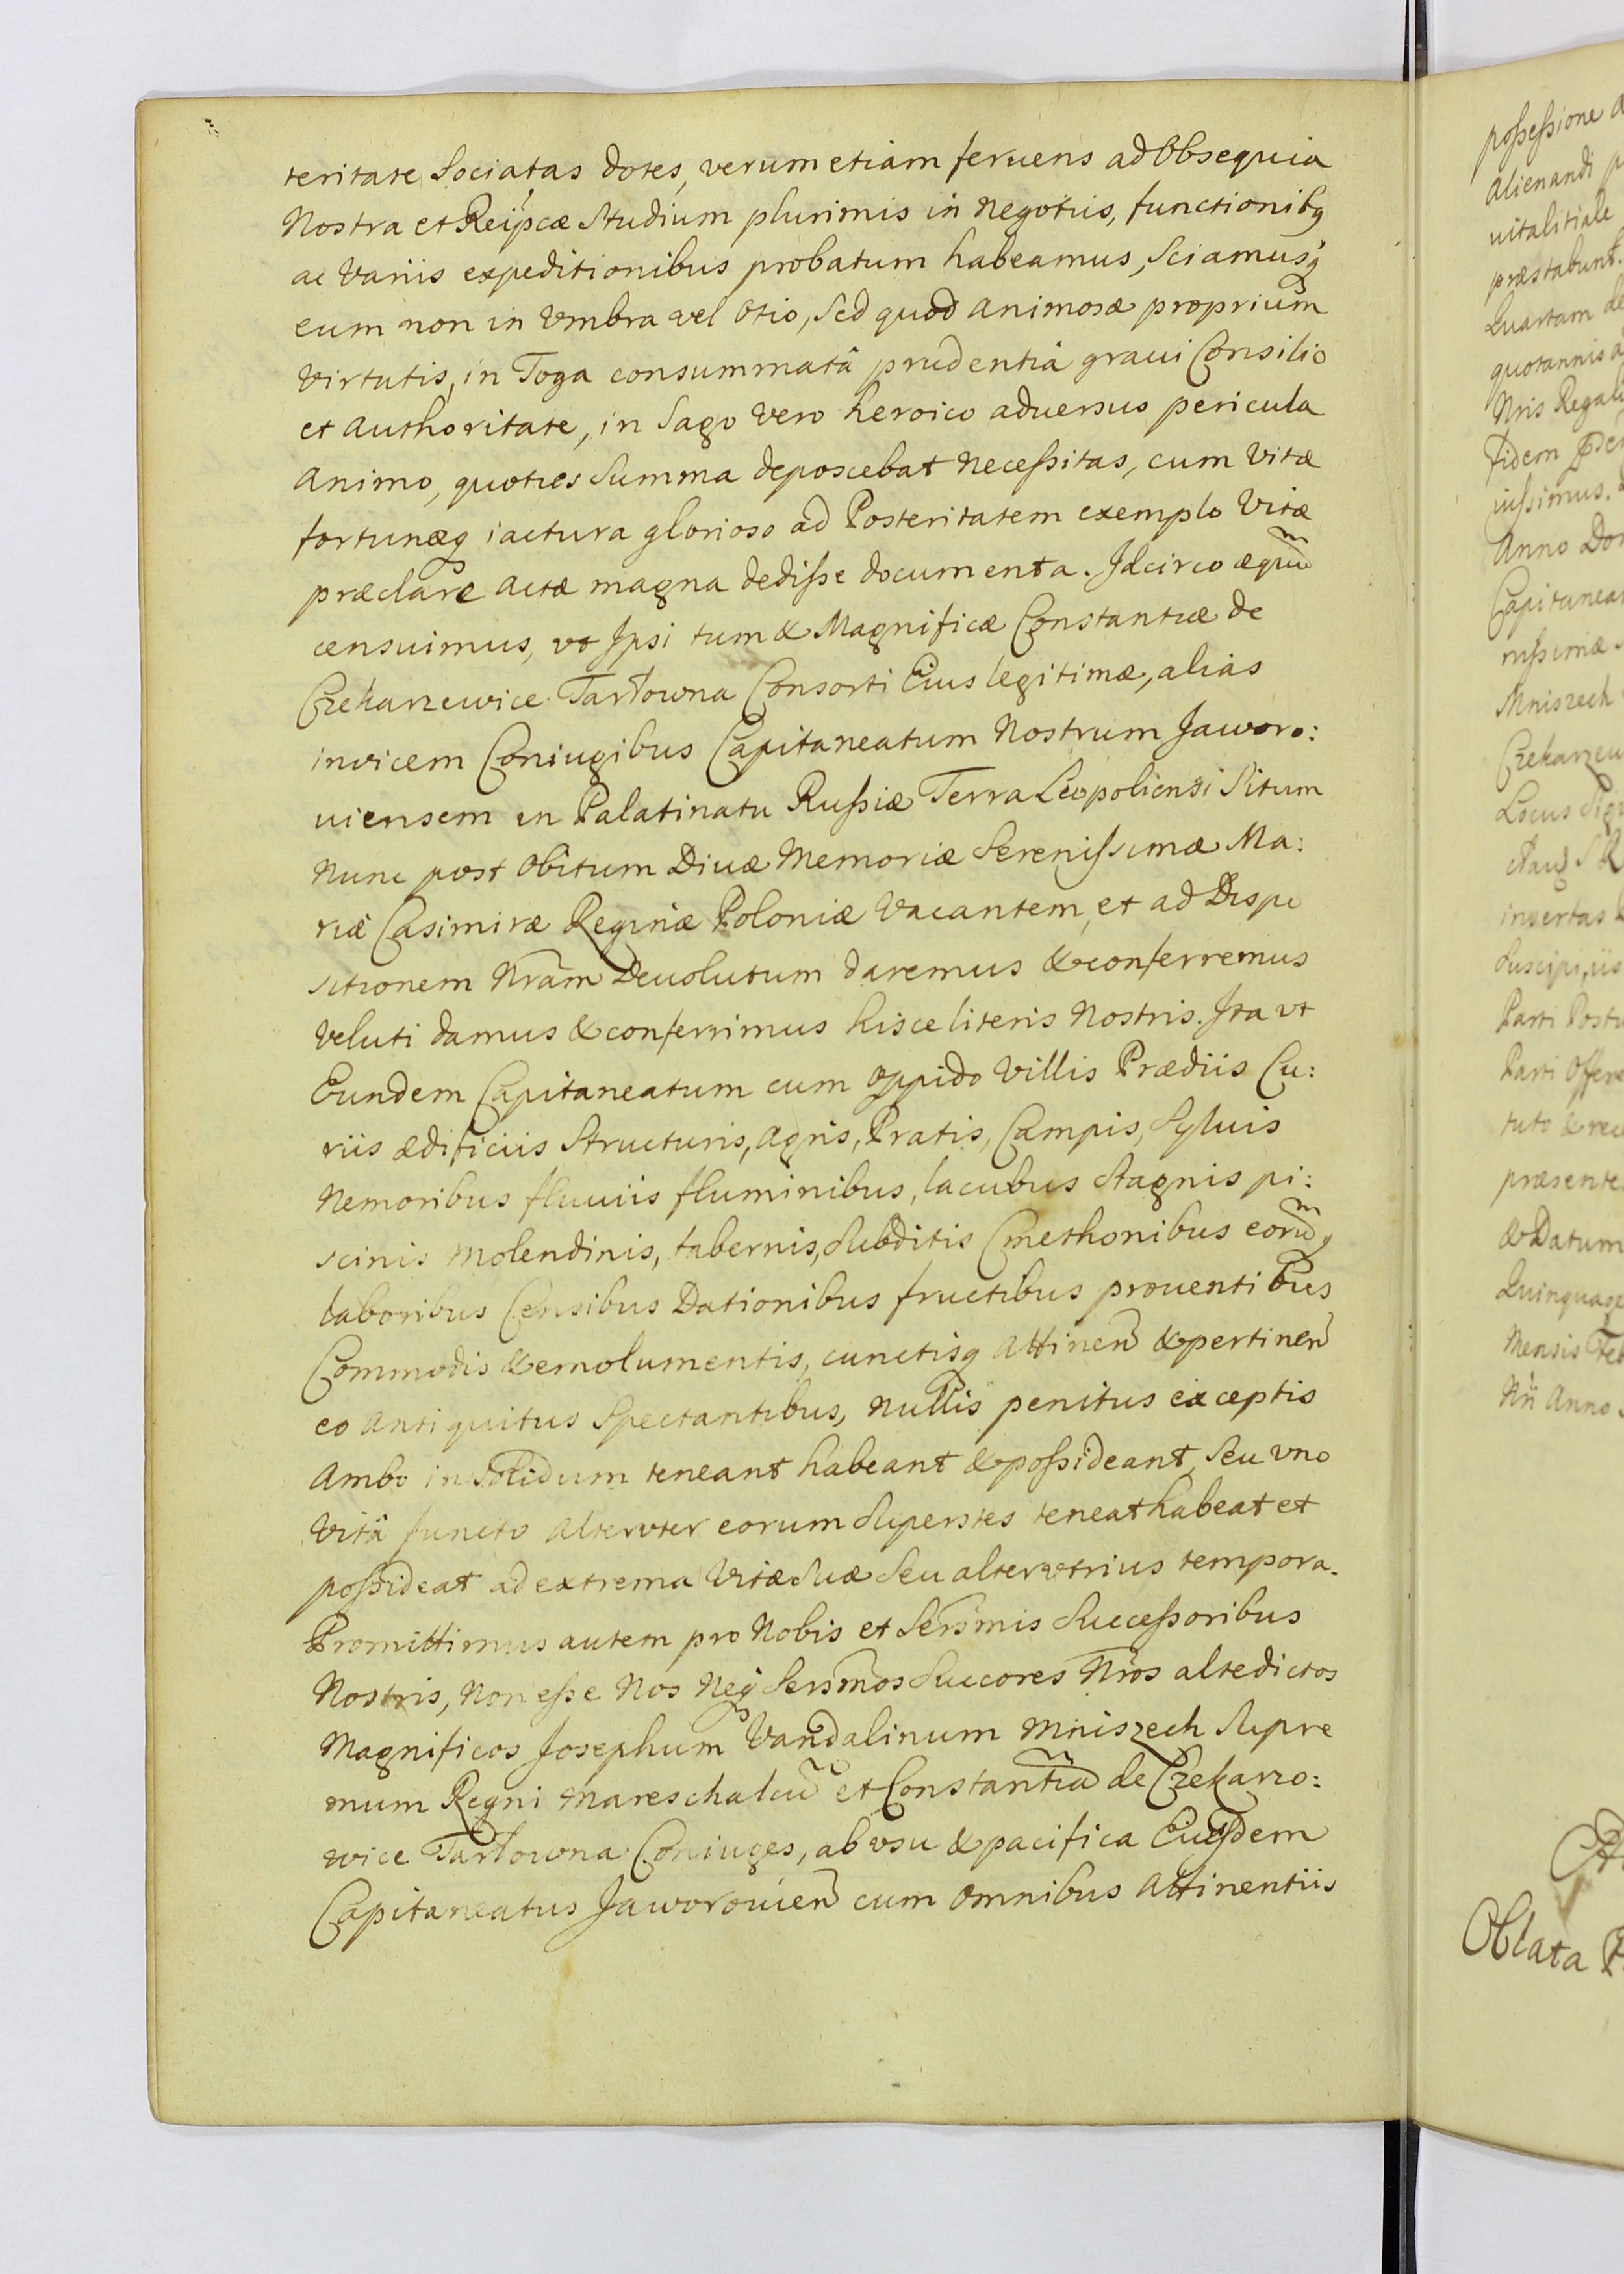 teritate Sociatas dotes, verum etiam feruens ad Obsequia
Nostra et Reipcæ Studium plurimis in negotiis, functionibq
ac Variis expeditionibus probatum habeamus, Sciamusq
eum non in Vmbra vel Otio, Sed quod animosæ proprium
Virtutis, in Toga consummatâ prudentiâ graui Consilio
et authoritate, in Sago Vero heroico aduersus pericula
animo, quoties Summa deposcebat necessitas, cum Vitæ
fortunæq iactura glorioso ad Posteritatem exemplo Vitæ
præclare actæ magna dedisse documenta. Idcirco æquũ
censuimus, vt Ipsi tum & Magnificæ Constantiæ de
Czekarzewice Tarłowna Consorti Eius legitimæ, alias
invicem Coniugibus Capitaneatum Nostrum Jaworo:
uiensem in Palatinatu Russiæ Terra Leopoliensi Situm
Nunc post Obitum Diuæ Memoriæ Serenissimæ Ma:
riæ Casimiræ Reginæ Poloniæ Vacantem, et ad Dispo
sitionem Nram Deuolutum daremus & conferremus
Veluti damus & conferimus hisce literis Nostris. Ita vt
Eundem Capitaneatum cum Oppido Villis Prædiis Cu:
riis ædificiis Structuris, agris, Pratis, Campis, Syluis
Nemoribus fluuiis fluminibus, lacubus Stagnis pi:
scinis Molendinis, tabernis, Subditis Cmethonibus eorũq
laboribus Censibus Dationibus fructibus prouentibus
Commodis & emolumentis, cunctisq Attinen̄ & pertinen̄
eo antiquitus Spectantibus, nullis penitus exceptis
Ambo in Solidum teneant habeant & possideant, Seu vno
Vitâ functo alteruter eorum Superstes teneat habeat et
possideat ad extrema Vitæ Suæ Seu alterutrius tempora.
Promittimus autem pro Nobis et Sersmis Successoribus
Nostris, Non esse Nos Neq Sersmos Succores Nros altedictos
Magnificos Josephum Vandalinum Mniszech Supre
mum Regni Mareschalcũ et Constantiã de Czekarzo:
wice Tarłowna Coniuges, ab vsu & pacifica Eiusdem
Capitaneatus Jaworouien̄ cum Omnibus Attinentiis
possessione
alienandi
uitalitiale
præstabunt.
Quartam
quotannis
Nris
fidem
iussimus.
Anno
Mniszech
Locus
insertas
Parti
Parti
&Datum
Mensis
Nri Anno
Oblata